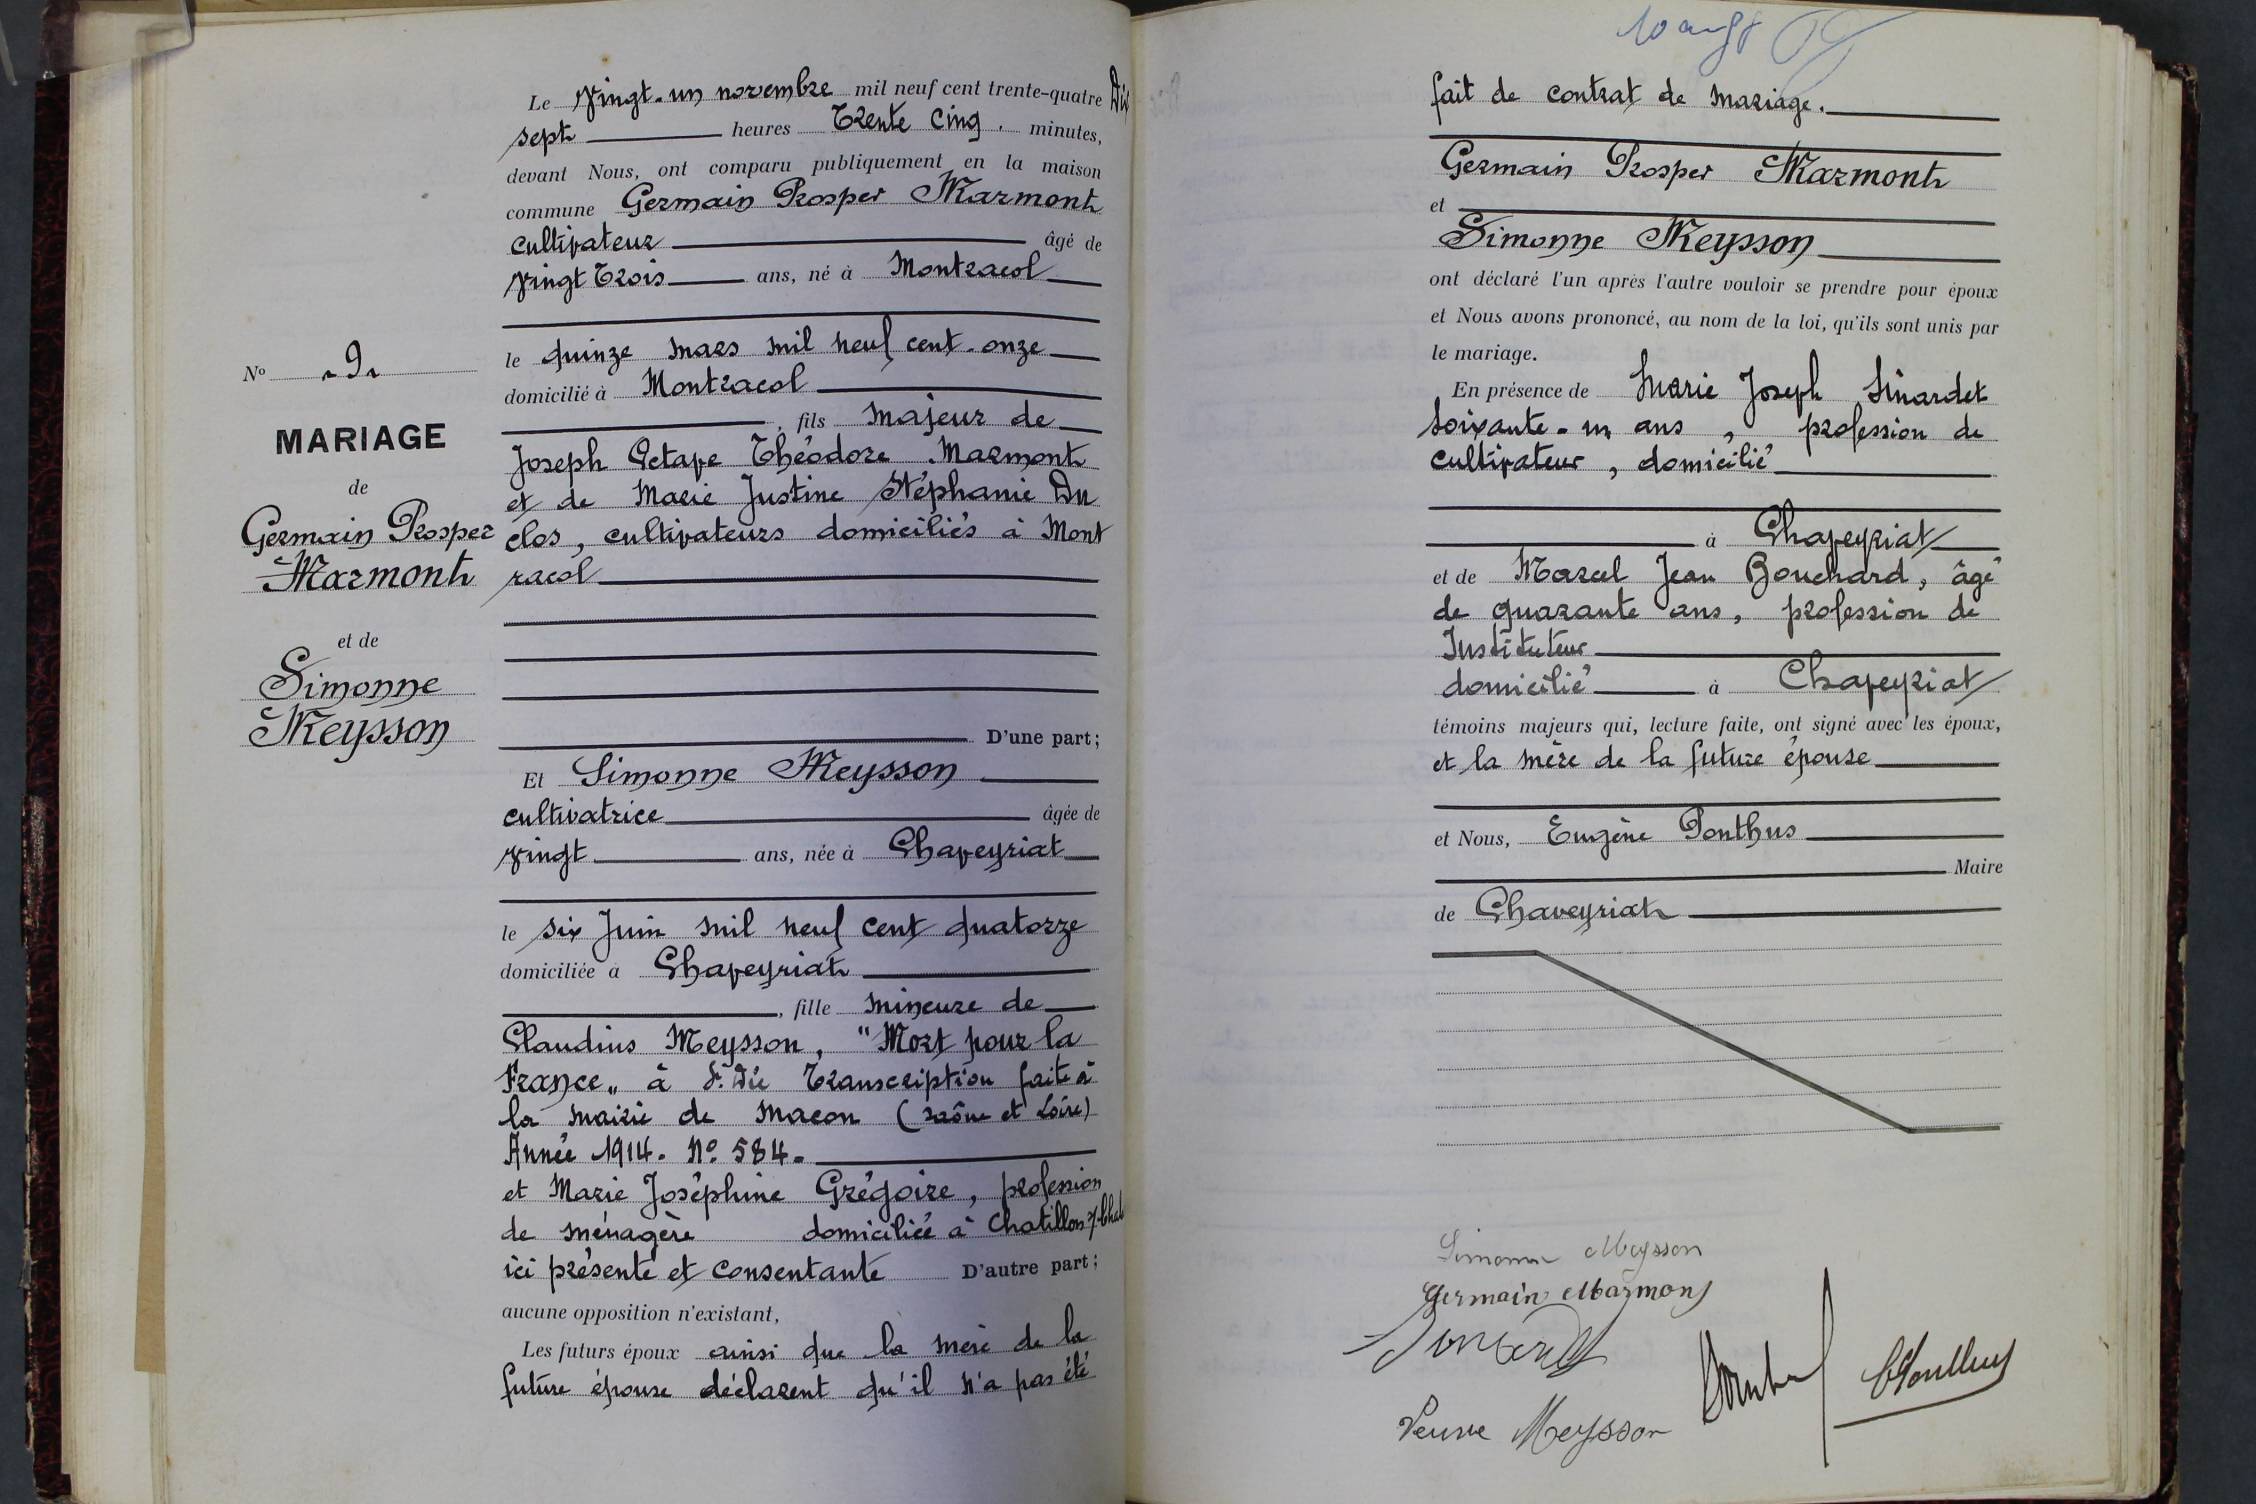 Le vingt-un novembre mil neuf cent trente-quatre Dix
sept heures Trente Cinq. minutes,
devant Nous, ont comparu publiquement en la maison
commune Germain Prosper Marmont
cultivateur âgé de
vingt Trois ans, né à Montracol
le quinze mars mil neuf cent-onze
domicilié à Montracol
, fils majeur de
Joseph Octave Théodore Marmont
et de Marie Justine Stéphanie Du
clos, cultivateurs domiciliés à Mont
racol
D'une part;
Et Simonne Meysson
cultivatrice âgée de
vingt ans, née à Chaveyriat
le six Juin mil neuf cent quatorze
domiciliée à Chaveyriat
, fille mineure de
Claudius Meysson, "Mort pour la
France" à St Dié Transcription faite à
la mairie de Macon (Saône et Loire)
Année 1914. No 584.
et Marie Joséphine Grégoire, profession
de ménagère domiciliée à Chatillon s/Chal
ici présente et consentante D'autre part;
aucune opposition n'existant,
Les futurs époux ainsi que la mère de la
future épouse déclarent qu'il n'a pas été
No 9
MARIAGE
de
Germain Prosper
Marmont
et de
Simonne
Meysson
fait de contrat de mariage.
Germain Prosper Marmont
et
Simonne Meysson
ont déclaré l'un après l'autre vouloir se prendre pour époux
et Nous avons prononcé, au nom de la loi, qu'ils sont unis par
le mariage.
En présence de Marie Joseph
soixante-un ans, profession de
cultivateur, domicilié
à Chaveyriat
et de Marcel Jean Bouchard, âgé
de quarante ans, profession de
Instituteur
domicilié à Chaveyriat
témoins majeurs qui, lecture faite, ont signé avec les époux,
et la mère de la future épouse
et Nous, Eugène Ponthus
Maire
de Chaveyriat
Simonne Meysson
Germain Marmont
Veuve Meysson